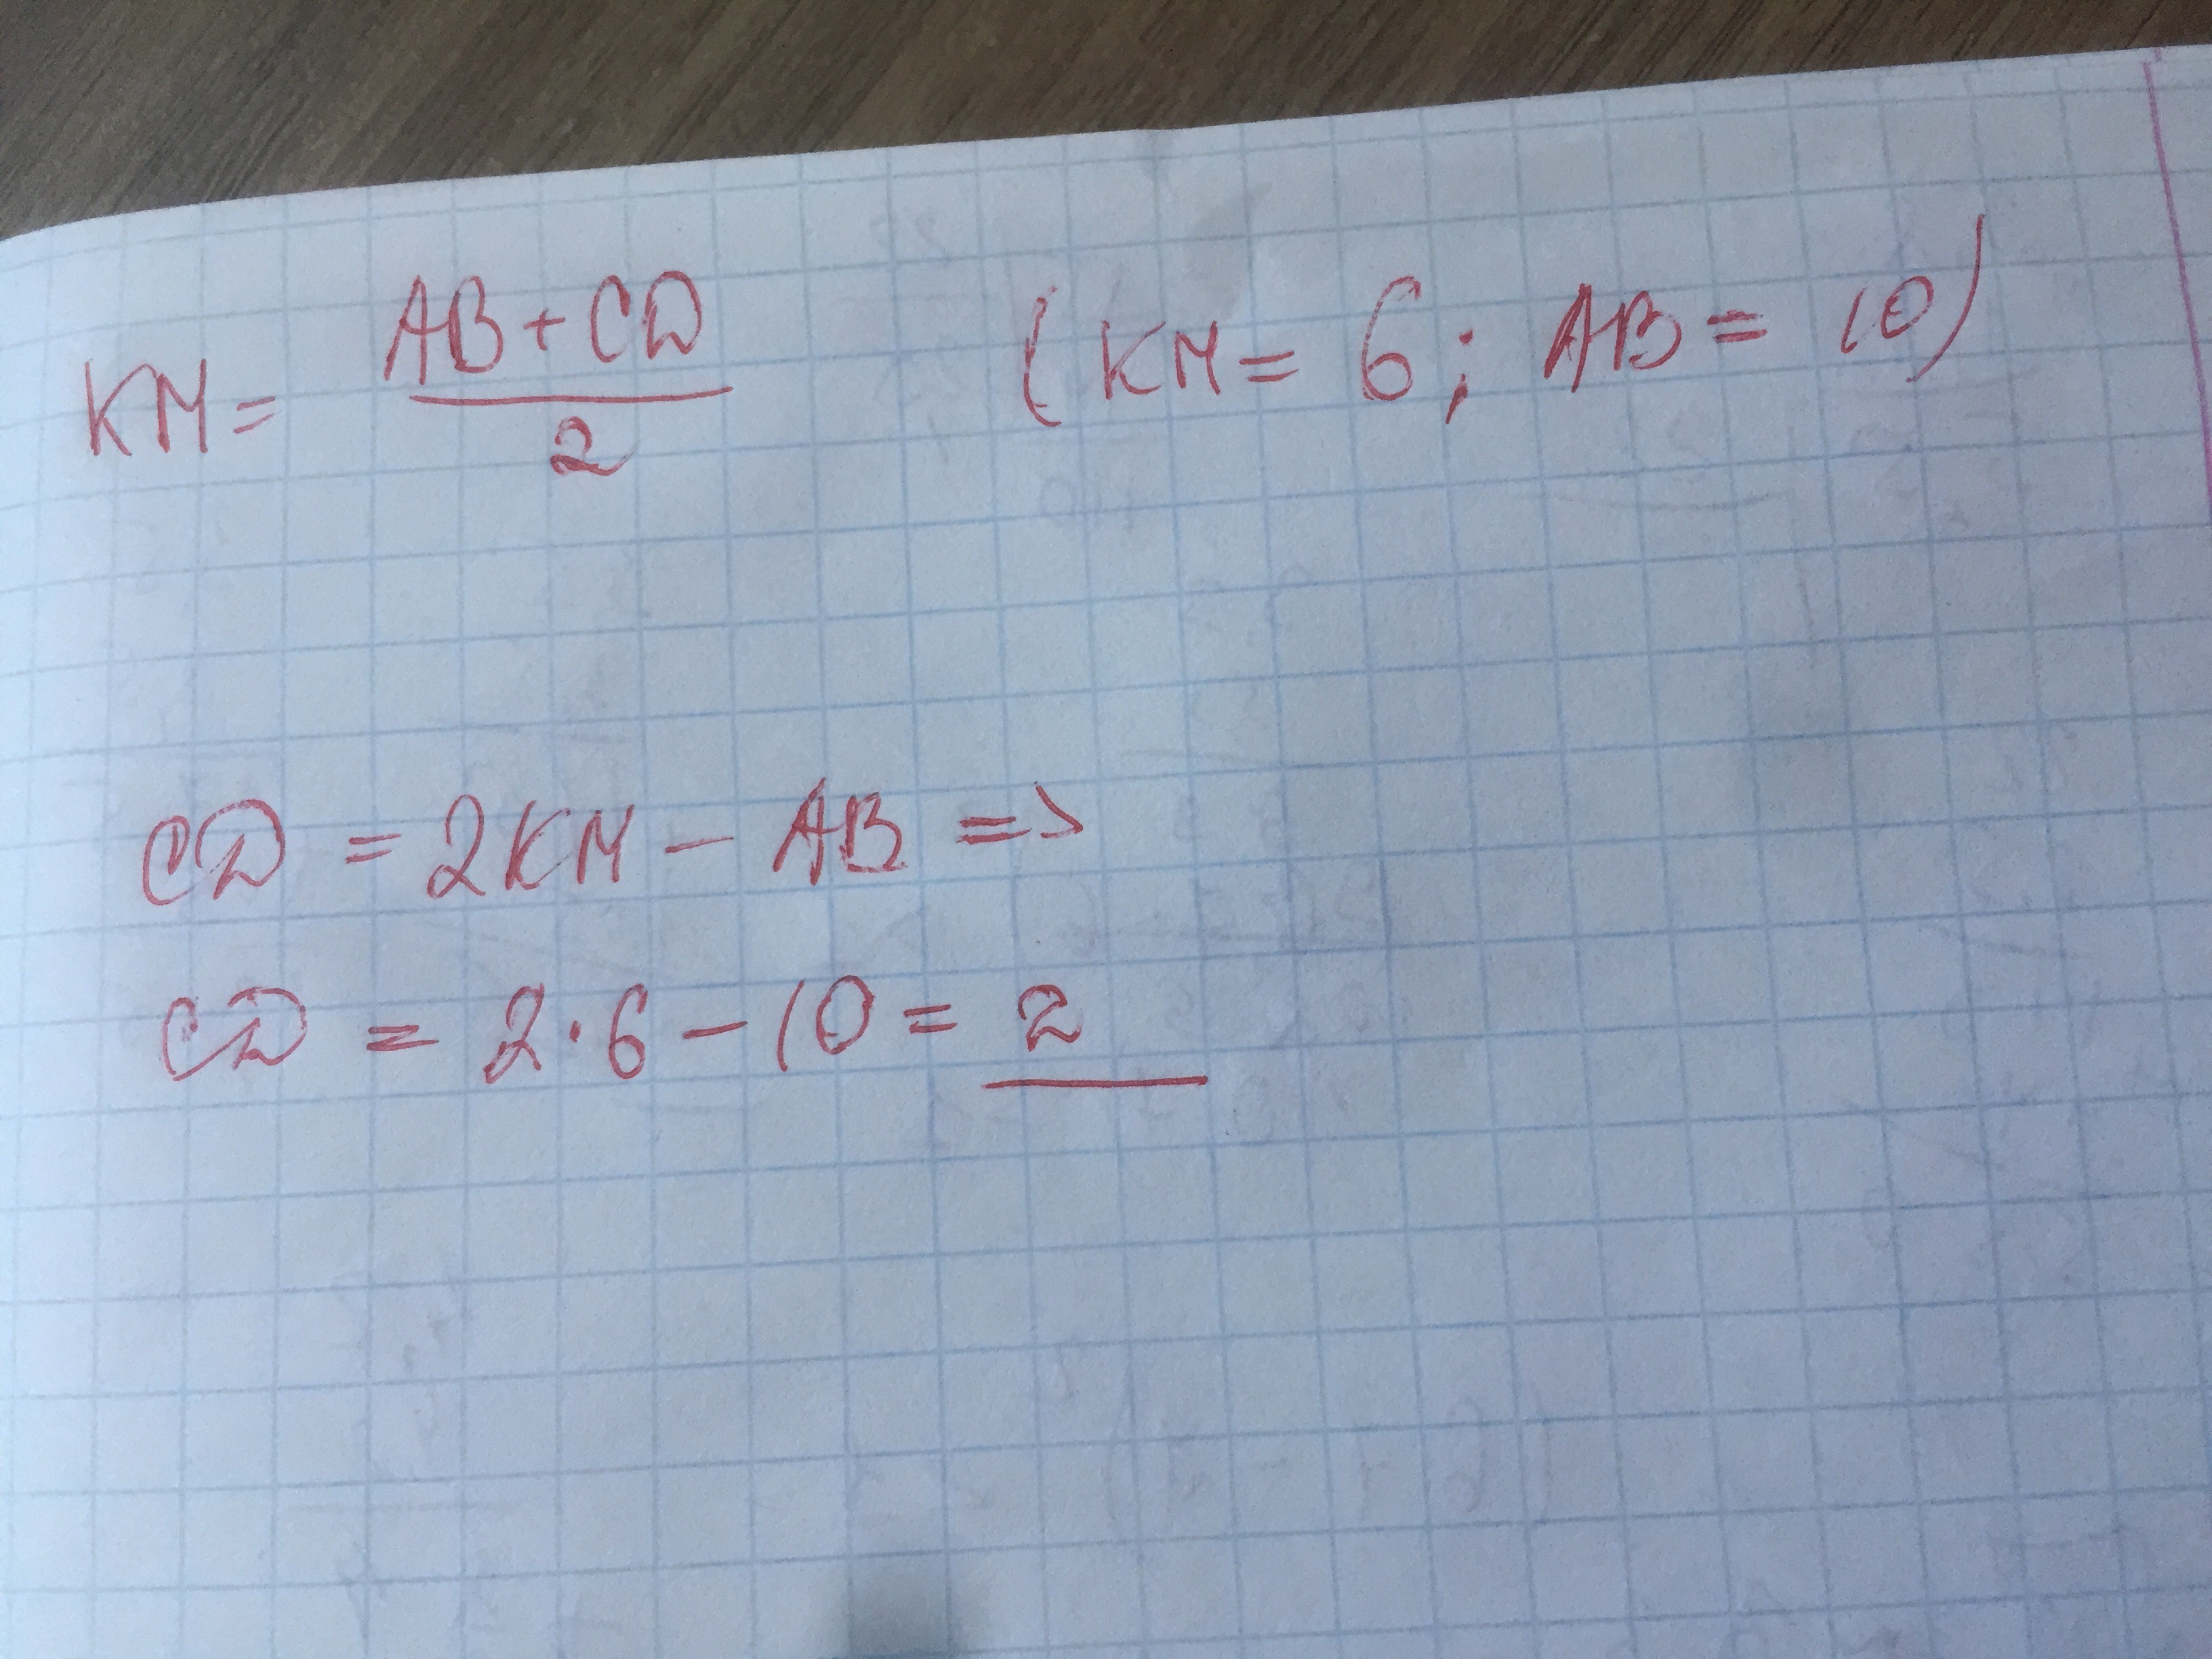 KM = (AB + CD)/2 (KM = 6; AB = 10)
CD = 2KM - AB =>
CD = 2·6 - 10 = 2